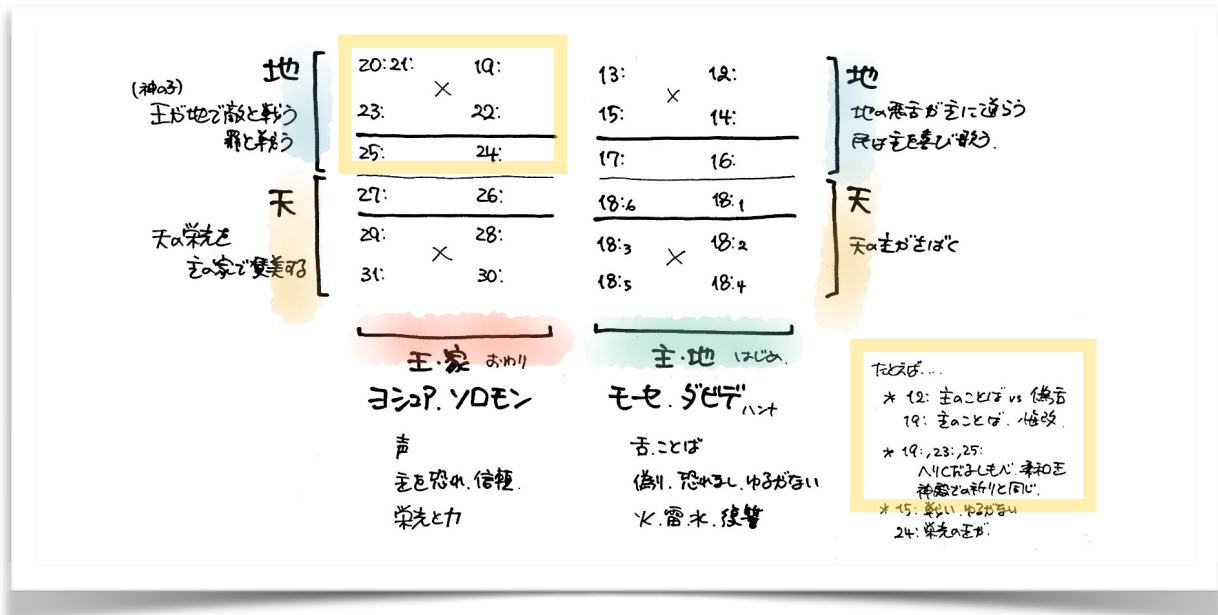 地
(神の子)
王が地で敵と戦う
罪と戦う
天
天の栄光を
主の家で賛美する
20:21: 19:
×
23: 22:
25: 24:
27: 26:
29: 28:
×
31: 30:
13: 12:
×
15: 14:
17: 16:
18:6 18:1
18:3 18:2
×
18:5 18:4
地
地の悪舌が主に逆らう
民は主を喜び歌う.
天
天の主がさばく
王・家 おわり
ヨシュア.ソロモン
声
主を恐れ.信頼.
栄光と力
主・地 はじめ.
モーセ.ダビデ ハンナ
舌.ことば
偽り.恐れまし.ゆるがない
火.雷.水.復讐
たとえば....
* 12: 主のことば vs 偽舌
19: 主のことば.悔改
* 19:,23:,25:
へりくだるしもべ.柔和王
神殿での祈りと同じ.
* 15: 戦い.ゆるがない
24: 栄光の王が.